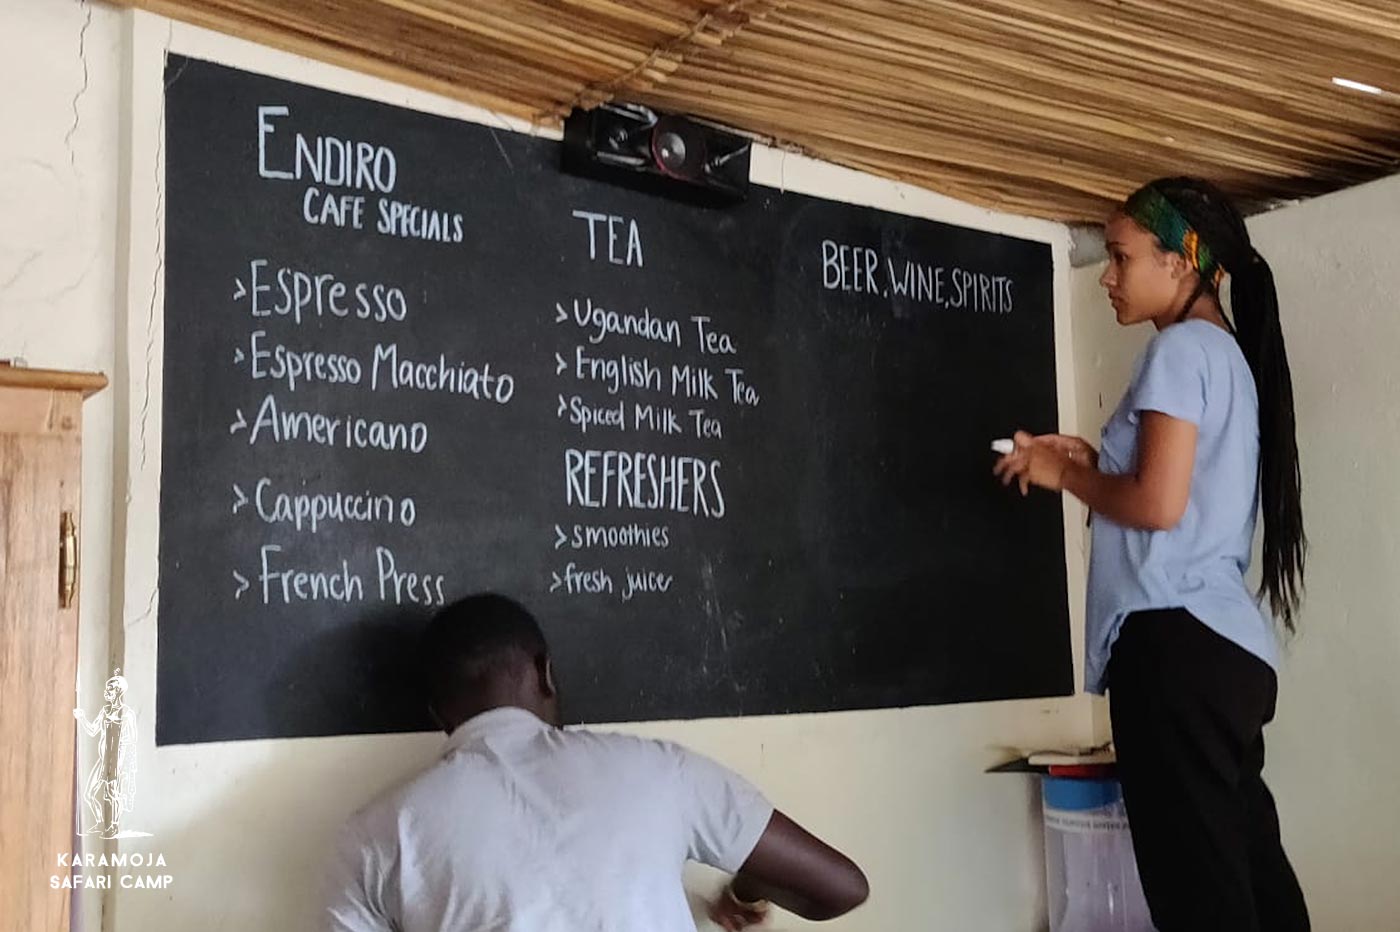 ENDIRO
CAFE SPECIALS
>Espresso
>Espresso Macchiato
>Americano
>Cappuccino
>French Press
TEA
>Ugandan Tea
>English Milk Tea
>Spiced Milk Tea
REFRESHERS
>smoothies
>fresh juice
BEER, WINE, SPIRITS
KARAMOJA
SAFARI CAMP